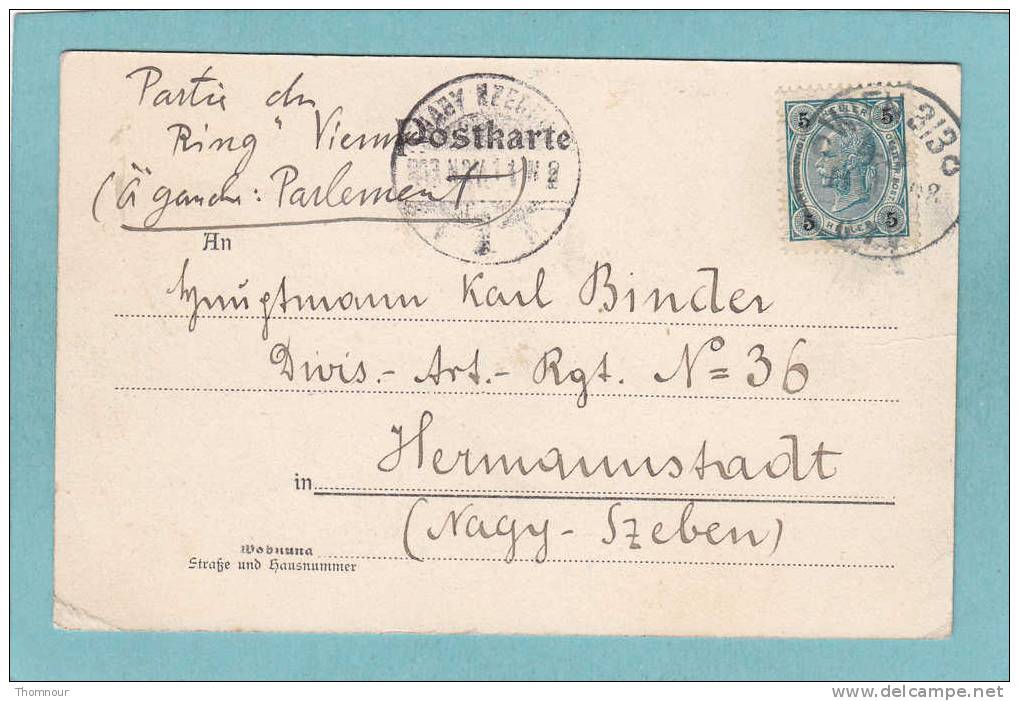 Partie du
Ring" Vienne
Postkarte
(à gauche: Parlement)
An
Hauptmann Karl Binder
Divis.- Art.- Rgt. No= 36
Hermannstadt
in
(Nagy-Szeben)
Wohnung
Straße und Hausnummer
5 5
HELLER
5 5
HELLER
Thomnour
www.delcampe.net